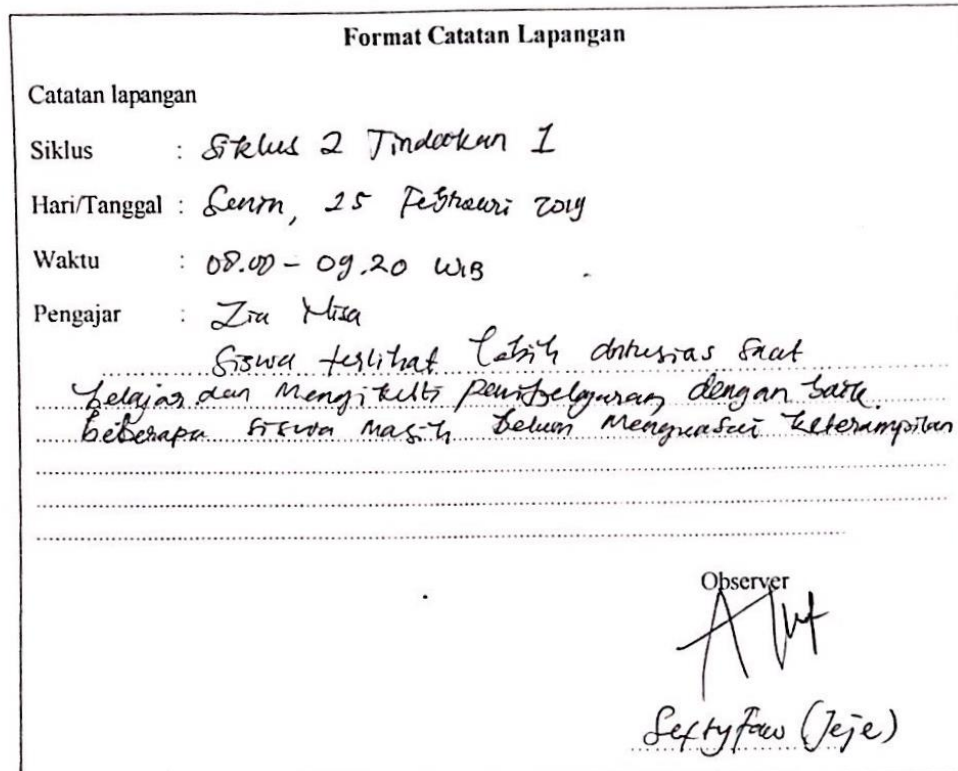 Format Catatan Lapangan
Catatan lapangan
Siklus : Siklus 2 Tindakan I
Hari/Tanggal : Senin, 25 Februari 2019
Waktu : 08.00 - 09.20 WIB
Pengajar : Zia
Siswa terlihat lebih antusias saat
belajar dan mengikuti pembelajaran dengan baik.
beberapa siswa masih belum menguasai keterampilan
Observer
(Jeje)